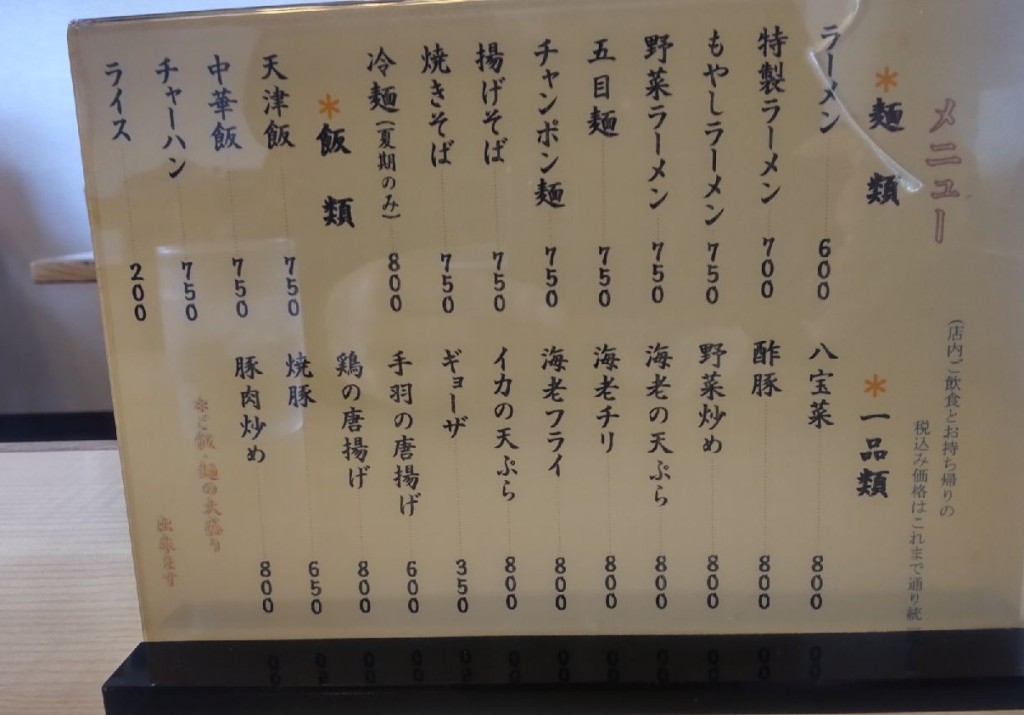 メニュー
(店内ご飲食とお持ち帰りの
税込み価格はこれまで通り統一
*麺類
ラーメン 600
特製ラーメン 700
もやしラーメン 750
野菜ラーメン 750
五目麺 750
チャンポン麺 750
揚げそば 750
焼きそば 750
冷麺(夏期のみ) 800
*飯類
天津飯 750
中華飯 750
チャーハン 750
ライス 200
*一品類
八宝菜 800
酢豚 800
野菜炒め 800
海老の天ぷら 800
海老チリ 800
海老フライ 800
イカの天ぷら 800
ギョーザ 350
手羽の唐揚げ 600
鶏の唐揚げ 800
焼豚 650
豚肉炒め 800
*ご飯・麺の大盛り
出来ます